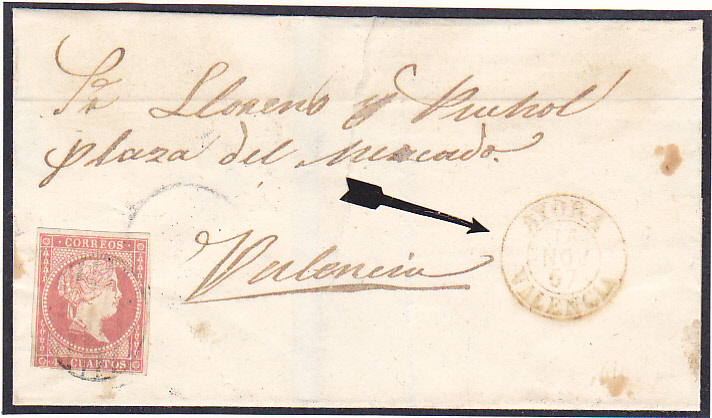 Sr Llorens y Puchol
plaza del Mercado.
Valencia
AYORA
NOV
57
VALENCIA
CORREOS
4 CUARTOS